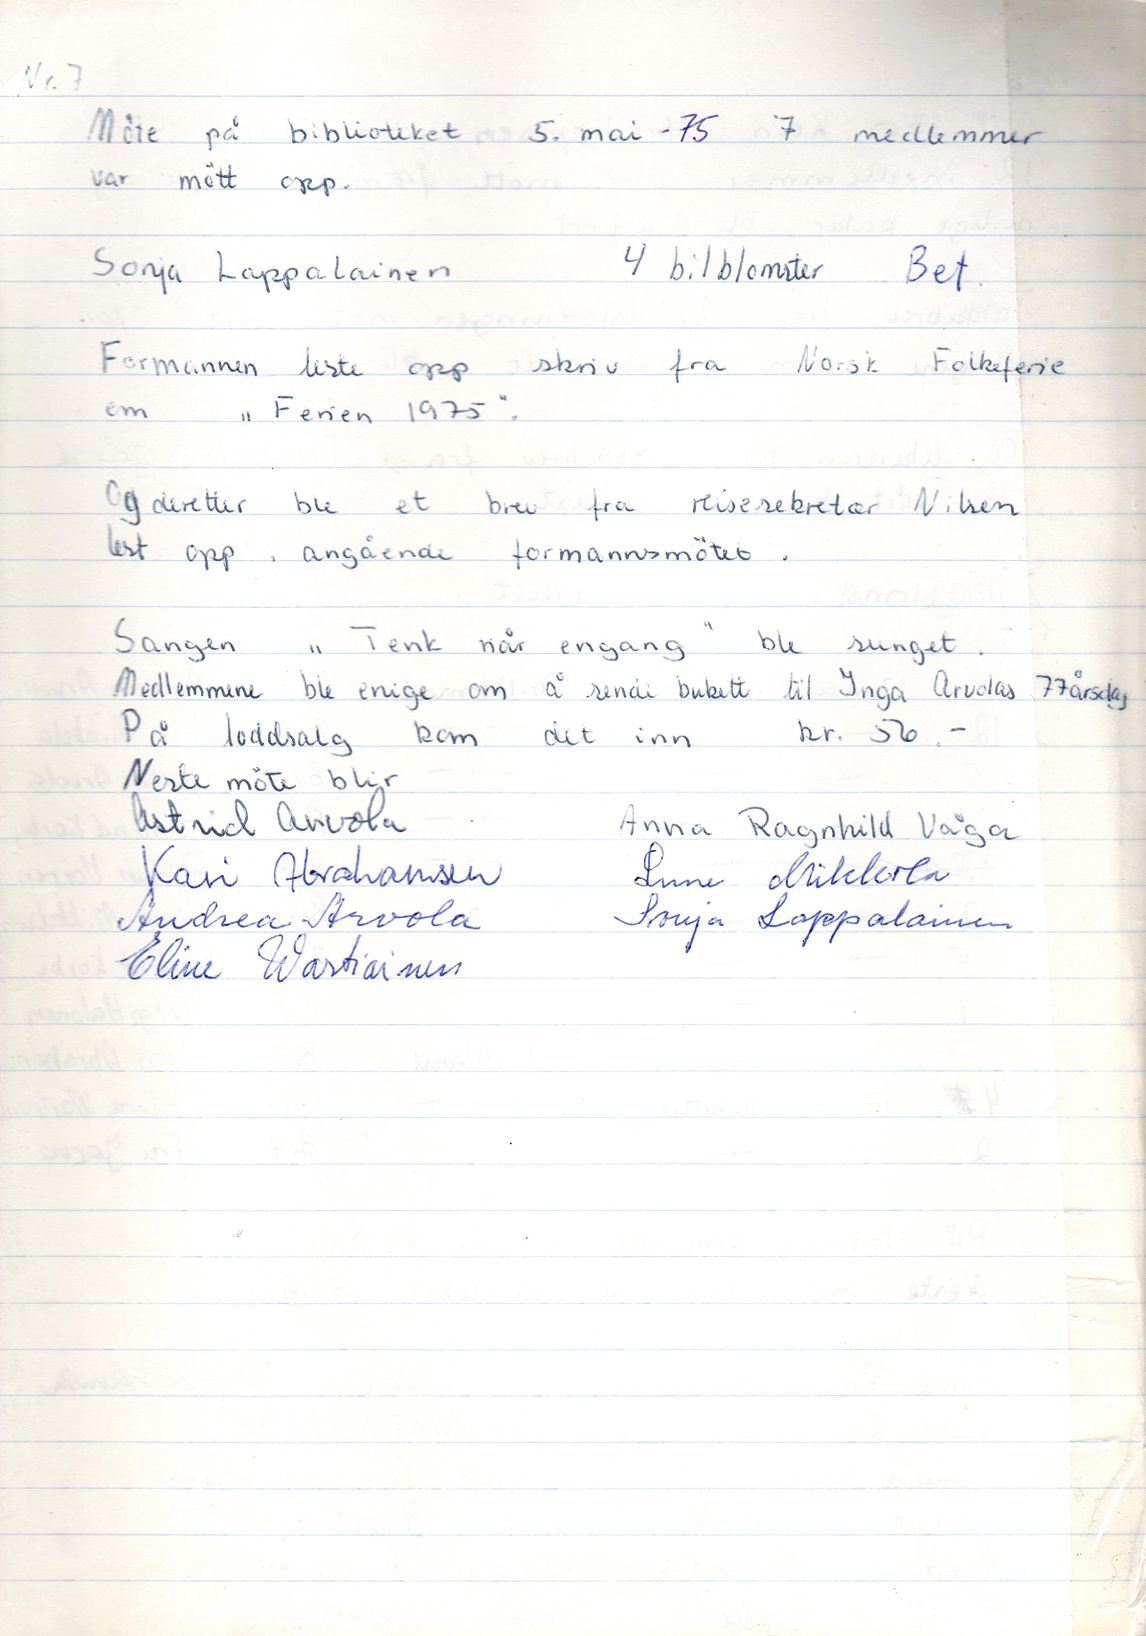 Nr. 7
Möte på biblioteket 5. mai -75 7 medlemmer
var mött opp.
Sonja Lappalainen 4 bilblomster Bet.
Formannen leste opp skriv fra Norsk Folkeferie
om „ Ferien 1975".
Og deretter ble et brev fra reisesekretær Nilsen
lest opp, angående formannsmötet.
Sangen „ Tenk når engang " ble sunget.
Medlemmene ble enige om å sende bukett til Inga Arvolas 77årsdag
På loddsalg kom det inn kr. 56.-
Neste möte blir
Astrid Arvola Anna Ragnhild Våga
Kari Abrahamsen Mikkola
Andrea Arvola Sonja Lappalainen
Eline Wartiainen